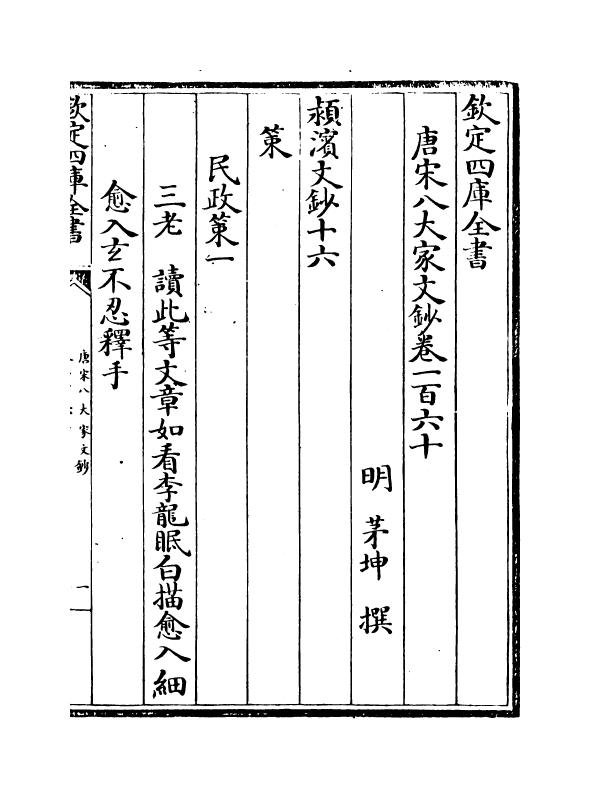 欽定四庫全書
唐宋八大家文鈔卷一百六十
明 茅坤 撰
潁濱文鈔十六
策
民政策一
三老 讀此等文章如看李龍眠白描愈入細
愈入玄不忍釋手
欽定四庫全書
唐宋八大家文鈔
一